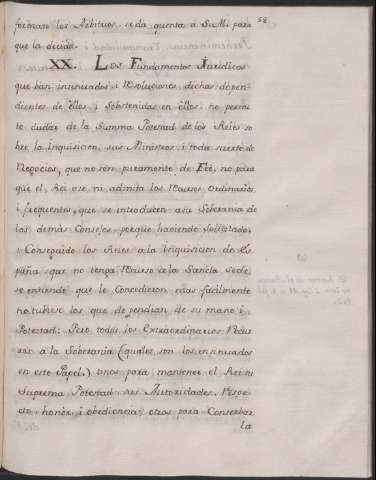 58
forman los Arbitros, se da quenta a Su Mag. para
que la decida.
XX. Los Fundamentos Juridicos
que han insinuados i resoluciones dichas depen-
dientes de Ellos, i Sobstenidas en Ellos, no permi-
te dudar de la Summa Potestad de los Reies so-
bre la Inquisicion, sus Ministros i toda suerte de
Negocios, que no son puramente de Feè, no para
que el Rei oie, ni admita los Recursos Ordinarios
i frequentes, que se introducen a su Soberania de
los demàs Consejos; porque haviendo sollicitado;
i Conseguido los Reies a la Inquisicion de Es-
paña que no tenga Recurso a la Santa Sede,
se entiende que le Concedieron mas facilmente
no tubiese los que dependian de su mano i
Potestad: Pero todos los Extraordinarios Recur-
sos à la Soberania (quales son los insinuados
en este Papel) unos para mantener el Rei su
Suprema Potestad sus Autoridades, Respe-
cto, honòr, i obediencia; otros para Conserbar
la